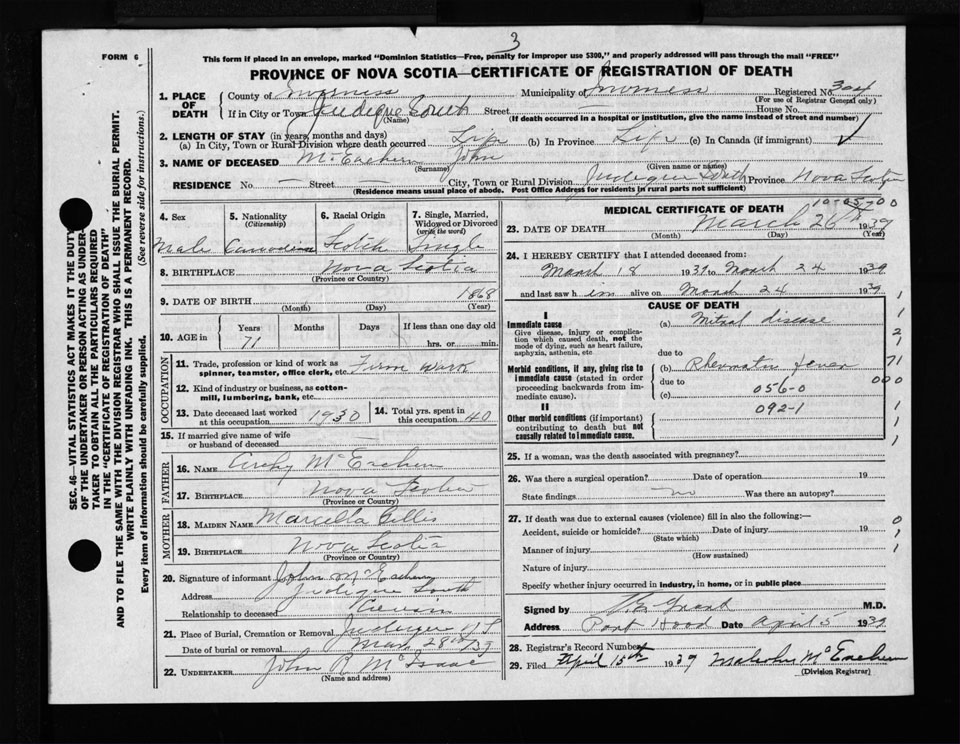 3
FORM 6
This form if placed in an envelope, marked "Dominion Statistics—Free, penalty for improper use $300," and properly addressed will pass through the mail "FREE"
PROVINCE OF NOVA SCOTIA—CERTIFICATE OF REGISTRATION OF DEATH
1. PLACE OF DEATH
County of Inverness Municipality of Inverness Registered No. 304
(For use of Registrar General only)
If in City or Town Judique South Street House No.
(Name) (If death occurred in a hospital or institution, give the name instead of street and number)
2. LENGTH OF STAY (in years, months and days)
(a) In City, Town or Rural Division where death occurred Life (b) In Province Life (c) In Canada (if immigrant)
3. NAME OF DECEASED McEachern John
(Surname) (Given name or names)
RESIDENCE No. — Street City, Town or Rural Division Judique South Province Nova Scotia
(Residence means usual place of abode. Post Office Address for residents in rural parts not sufficient)
4. Sex
Male
5. Nationality
(Citizenship)
Canadian
6. Racial Origin
Scotch
7. Single, Married, Widowed or Divorced
(write the word)
Single
8. BIRTHPLACE Nova Scotia
(Province or Country)
9. DATE OF BIRTH 1868
(Month) (Day) (Year)
10. AGE in
Years Months Days If less than one day
71 hrs. or min.
OCCUPATION
11. Trade, profession or kind of work as spinner, teamster, office clerk, etc. Farm Work
12. Kind of industry or business, as cotton-mill, lumbering, bank, etc.
13. Date deceased last worked at this occupation 1930
14. Total yrs. spent in this occupation 40
15. If married give name of wife or husband of deceased —
FATHER
16. NAME Archy McEachern
17. BIRTHPLACE Nova Scotia
(Province or Country)
MOTHER
18. MAIDEN NAME Marcella Gillis
19. BIRTHPLACE Nova Scotia
(Province or Country)
20. Signature of informant John McEachern
Address Judique South
Relationship to deceased
21. Place of Burial, Cremation or Removal Judique N S
Date of burial or removal Mar 28th/39
22. UNDERTAKER John R McIsaac
(Name and address)
MEDICAL CERTIFICATE OF DEATH
10-05-00
23. DATE OF DEATH March 26th 1939
(Month) (Day) (Year)
24. I HEREBY CERTIFY that I attended deceased from:
March 18 1939 to March 24 1939
and last saw him alive on March 24 1939
CAUSE OF DEATH
I
Immediate cause
Give disease, injury or complication which caused death, not the mode of dying, such as heart failure, asphyxia, asthenia, etc
(a) Mitral disease
due to
Morbid conditions, if any, giving rise to immediate cause (stated in order proceeding backwards from immediate cause).
(b) Rheumatic fever
due to 056-0
(c)
II
092-1
Other morbid conditions (if important) contributing to death but not causally related to immediate cause.
1
1
2
1
71
000
25. If a woman, was the death associated with pregnancy?
26. Was there a surgical operation? Date of operation 19
State findings no Was there an autopsy?
27. If death was due to external causes (violence) fill in also the following:—
Accident, suicide or homicide? Date of injury 19
(State which)
Manner of injury
(How sustained)
Nature of injury
Specify whether injury occurred in industry, in home, or in public place
0
1
1
Signed by Grant M.D.
Address Port Hood Date April 5 1939
28. Registrar's Record Number
29. Filed April 15th 1939 Malcolm McEachern
(Division Registrar)
SEC. 46—VITAL STATISTICS ACT MAKES IT THE DUTY
OF THE UNDERTAKER OR PERSON ACTING AS UNDER-
TAKER TO OBTAIN ALL THE PARTICULARS REQUIRED
IN THE "CERTIFICATE OF REGISTRATION OF DEATH"
AND TO FILE THE SAME WITH THE DIVISION REGISTRAR WHO SHALL ISSUE THE BURIAL PERMIT.
WRITE PLAINLY WITH UNFADING INK. THIS IS A PERMANENT RECORD.
Every item of information should be carefully supplied. (See reverse side for instructions.)